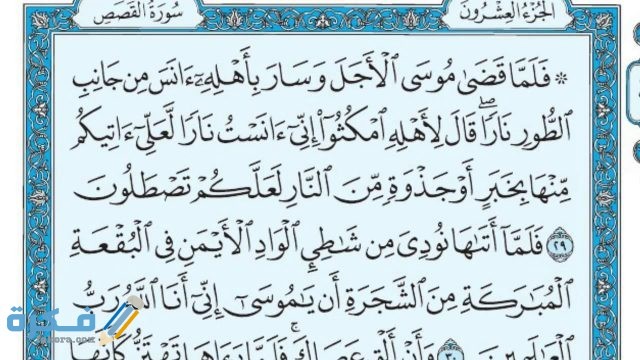 الجزء العشرون
سورة القصص
۞ فَلَمَّا قَضَىٰ مُوسَى ٱلْأَجَلَ وَسَارَ بِأَهْلِهِۦٓ ءَانَسَ مِن جَانِبِ
ٱلطُّورِ نَارًاۖ قَالَ لِأَهْلِهِ ٱمْكُثُوٓا۟ إِنِّىٓ ءَانَسْتُ نَارًا لَّعَلِّىٓ ءَاتِيكُم
مِّنْهَا بِخَبَرٍ أَوْ جَذْوَةٍ مِّنَ ٱلنَّارِ لَعَلَّكُمْ تَصْطَلُونَ
٢٩ فَلَمَّآ أَتَىٰهَا نُودِىَ مِن شَٰطِئِ ٱلْوَادِ ٱلْأَيْمَنِ فِى ٱلْبُقْعَةِ
ٱلْمُبَٰرَكَةِ مِنَ ٱلشَّجَرَةِ أَن يَٰمُوسَىٰٓ إِنِّىٓ أَنَا ٱللَّهُ رَبُّ
وَأَنْ أَلْقِ عَصَاكَۚ فَلَمَّا رَءَاهَا تَهْتَزُّ كَأَنَّهَا